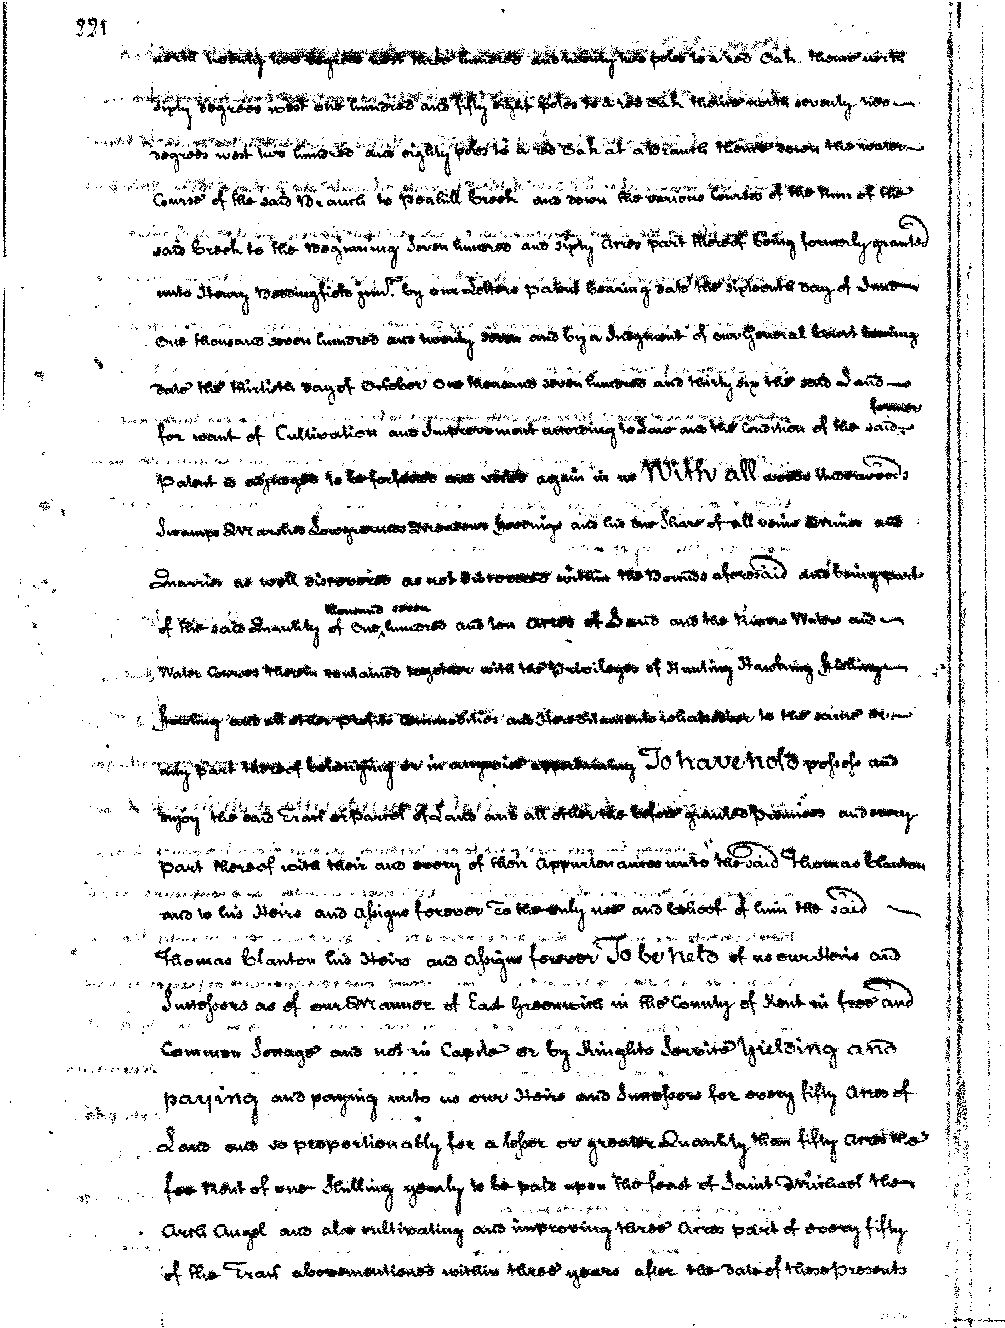 221
north twenty two degrees west three hundred and twenty two poles to a red Oak thence north
sixty degrees west one hundred and fifty eight poles to a red Oak thence north seventy two
degrees west two hundred and eighty poles to a red Oak at a Branch thence down the water
Course of the said Branch to Peahill Creek and down the various Courses of the Run of the
said Creek to the Beginning Seven hundred and sixty Acres part thereof being formerly granted
unto Henry Beddingfield junr. by our Letters Patent bearing date the sixteenth day of June
One thousand seven hundred and twenty seven and by a Judgment of our General Court bearing
date the thirtieth day of October One thousand seven hundred and thirty six the said Land
former
for want of Cultivation and Improvement according to Law and the Condition of the said
Patent is adjudged to be forfeited and vested again in us With all woods Underwoods
Swamps Marshes Lowgrounds Meadows Feedings and his due Share of all veins Mines and
Quarries as well discovered as not discovered within the Bounds aforesaid and being part
thousand seven
of the said Quantity of One hundred and ten Acres of Land and the Rivers Waters and
Water Courses therein contained together with the Priviledges of Hunting Hawking Fishing
Fowling and all other profits Commodities and Hereditaments whatsoever to the same or
any part thereof belonging or in anywise appertaining To have hold possess and
enjoy the said Tract or Parcel of Land and all other the before granted Premises and every
part thereof with their and every of their Appurtenances unto the said Thomas Clanton
and to his Heirs and Assigns forever To the only use and behoof of him the said
Thomas Clanton his Heirs and Assigns forever To be held of us our Heirs and
Successors as of our Mannor of East Greenwich in the County of Kent in free and
Common Soccage and not in Capite or by Knights Service Yielding and
paying and paying unto us our Heirs and Successors for every fifty Acres of
Land and so proportionably for a lesser or greater Quantity than fifty Acres the
fee Rent of one Shilling yearly to be paid upon the feast of Saint Michael the
Arch Angel and also cultivating and improving three Acres part of every fifty
of the Tract abovementioned within three years after the date of these Presents